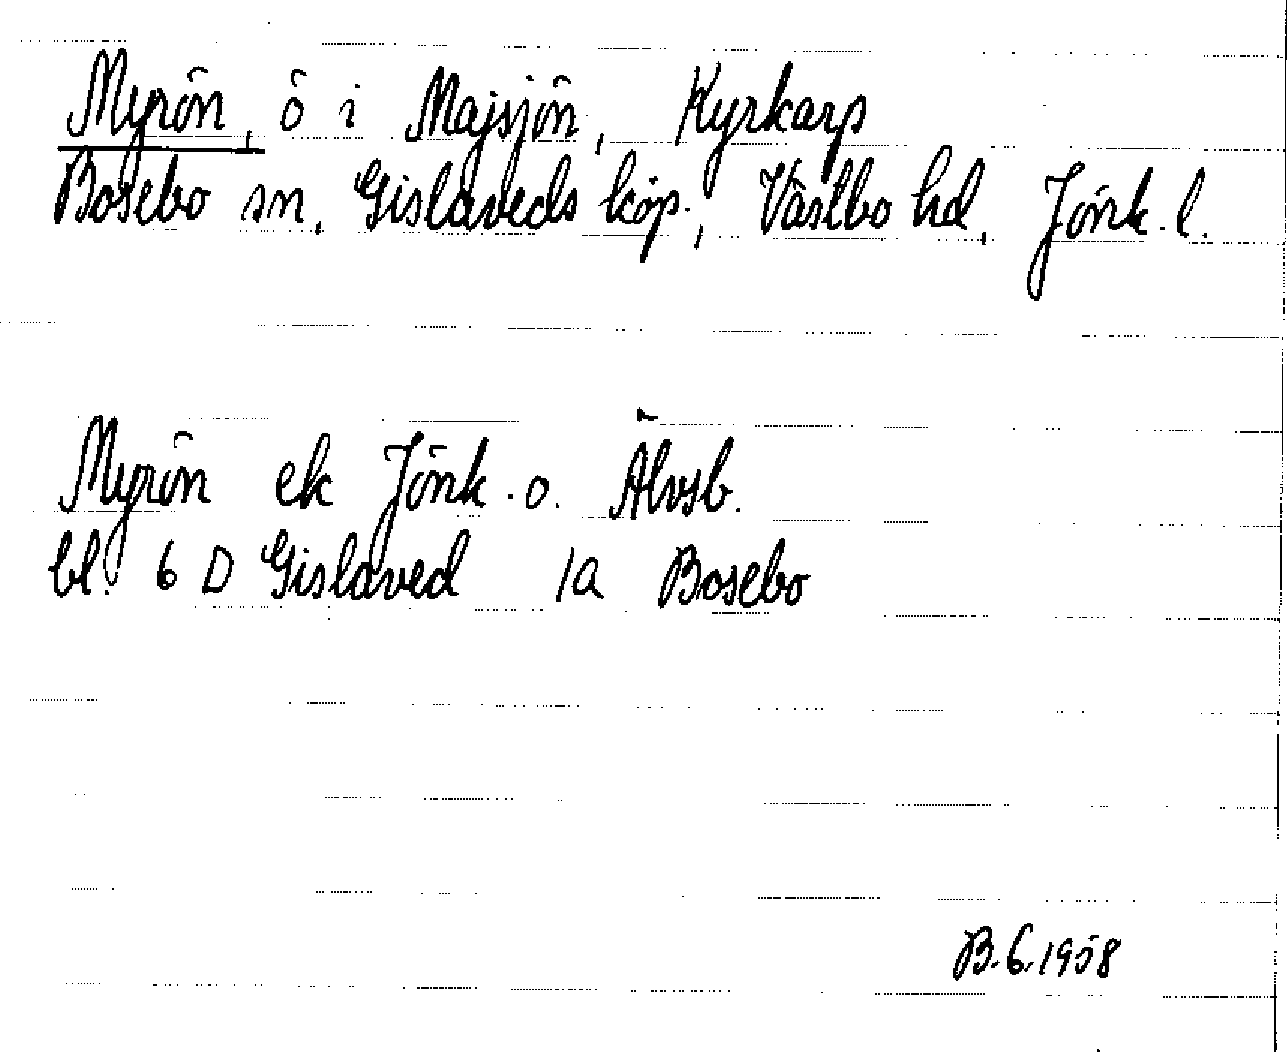 Myrön, ö i Majsjön, Kyrkarp
Bosebo sn, Gislaveds köp., Västbo hd, Jönk. l.
Myrön ek Jönk. o. Älvsb.
bl. 6 D Gislaved 1a Bosebo
B.G.1958